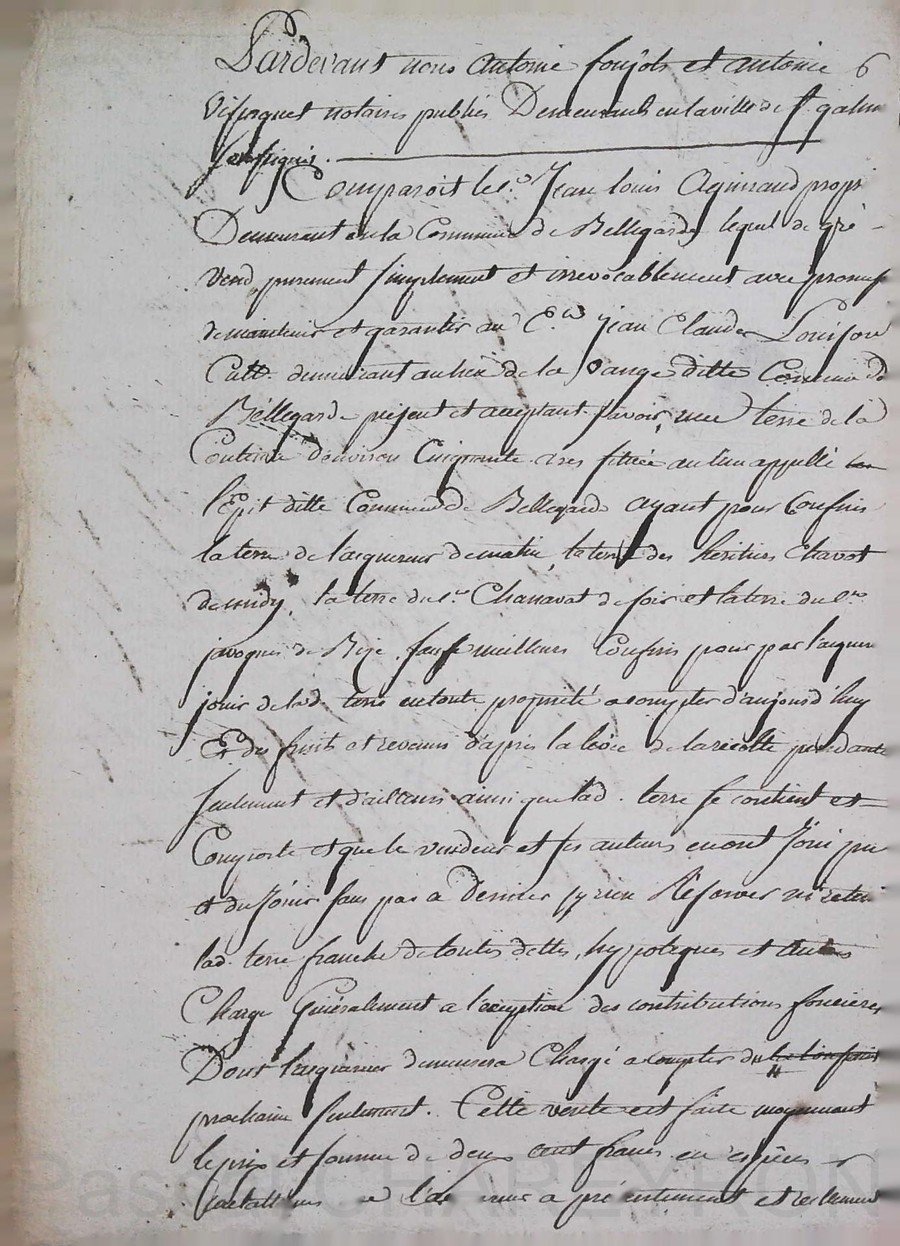 Pardevant nous antoine foujols et antoine 6
notaires publics Demeurants en la ville de St galm
soussignés.
Comparoit le Cen Jean louis Aguiraud propr
Demeurant en la Commune de Bellegarde lequel de gré
vend purement simplement et irrevocablement avec promesse
de maintenir et garantir au Cen jean Claude Louison
Cultr demeurant au lieu de la ditte Commune de
Bellegarde present et acceptant. savoir, une terre de la
Contenue d'environ Cinquante ares située au lieu appellé
l'Epit ditte Commune de Bellegarde ayant pour Confins
la terre de l'acquereur de matin, la terre des heritiers Chavot
de midy, la terre du Cen Chanavat de soir et la terre du Cen
javogues de Bize. sauf meilleurs Confins pour par l'acquer
jouir de lad. terre en toute propriété a compter d'aujourd'huy
Et des fruits et revenus d'après la levée de la recolte pendante
seulement et d'ailleurs ainsi que lad. terre se contient et
Comporte et que le vendeur et ses auteurs en ont Joui pu
et du Jouir sans par ce dernier s'y rien Reserver ni reteni
lad. terre franche de toutes dettes, hypoteques et autres
Charge Généralement a l'exception des contributions foncieres
Dont l'acquereur demeurera Chargé a compter du
prochaine seulement. Cette vente est faite moyennant
le prix et somme de deux cent francs en espèces
metalliques a présentement et reelement